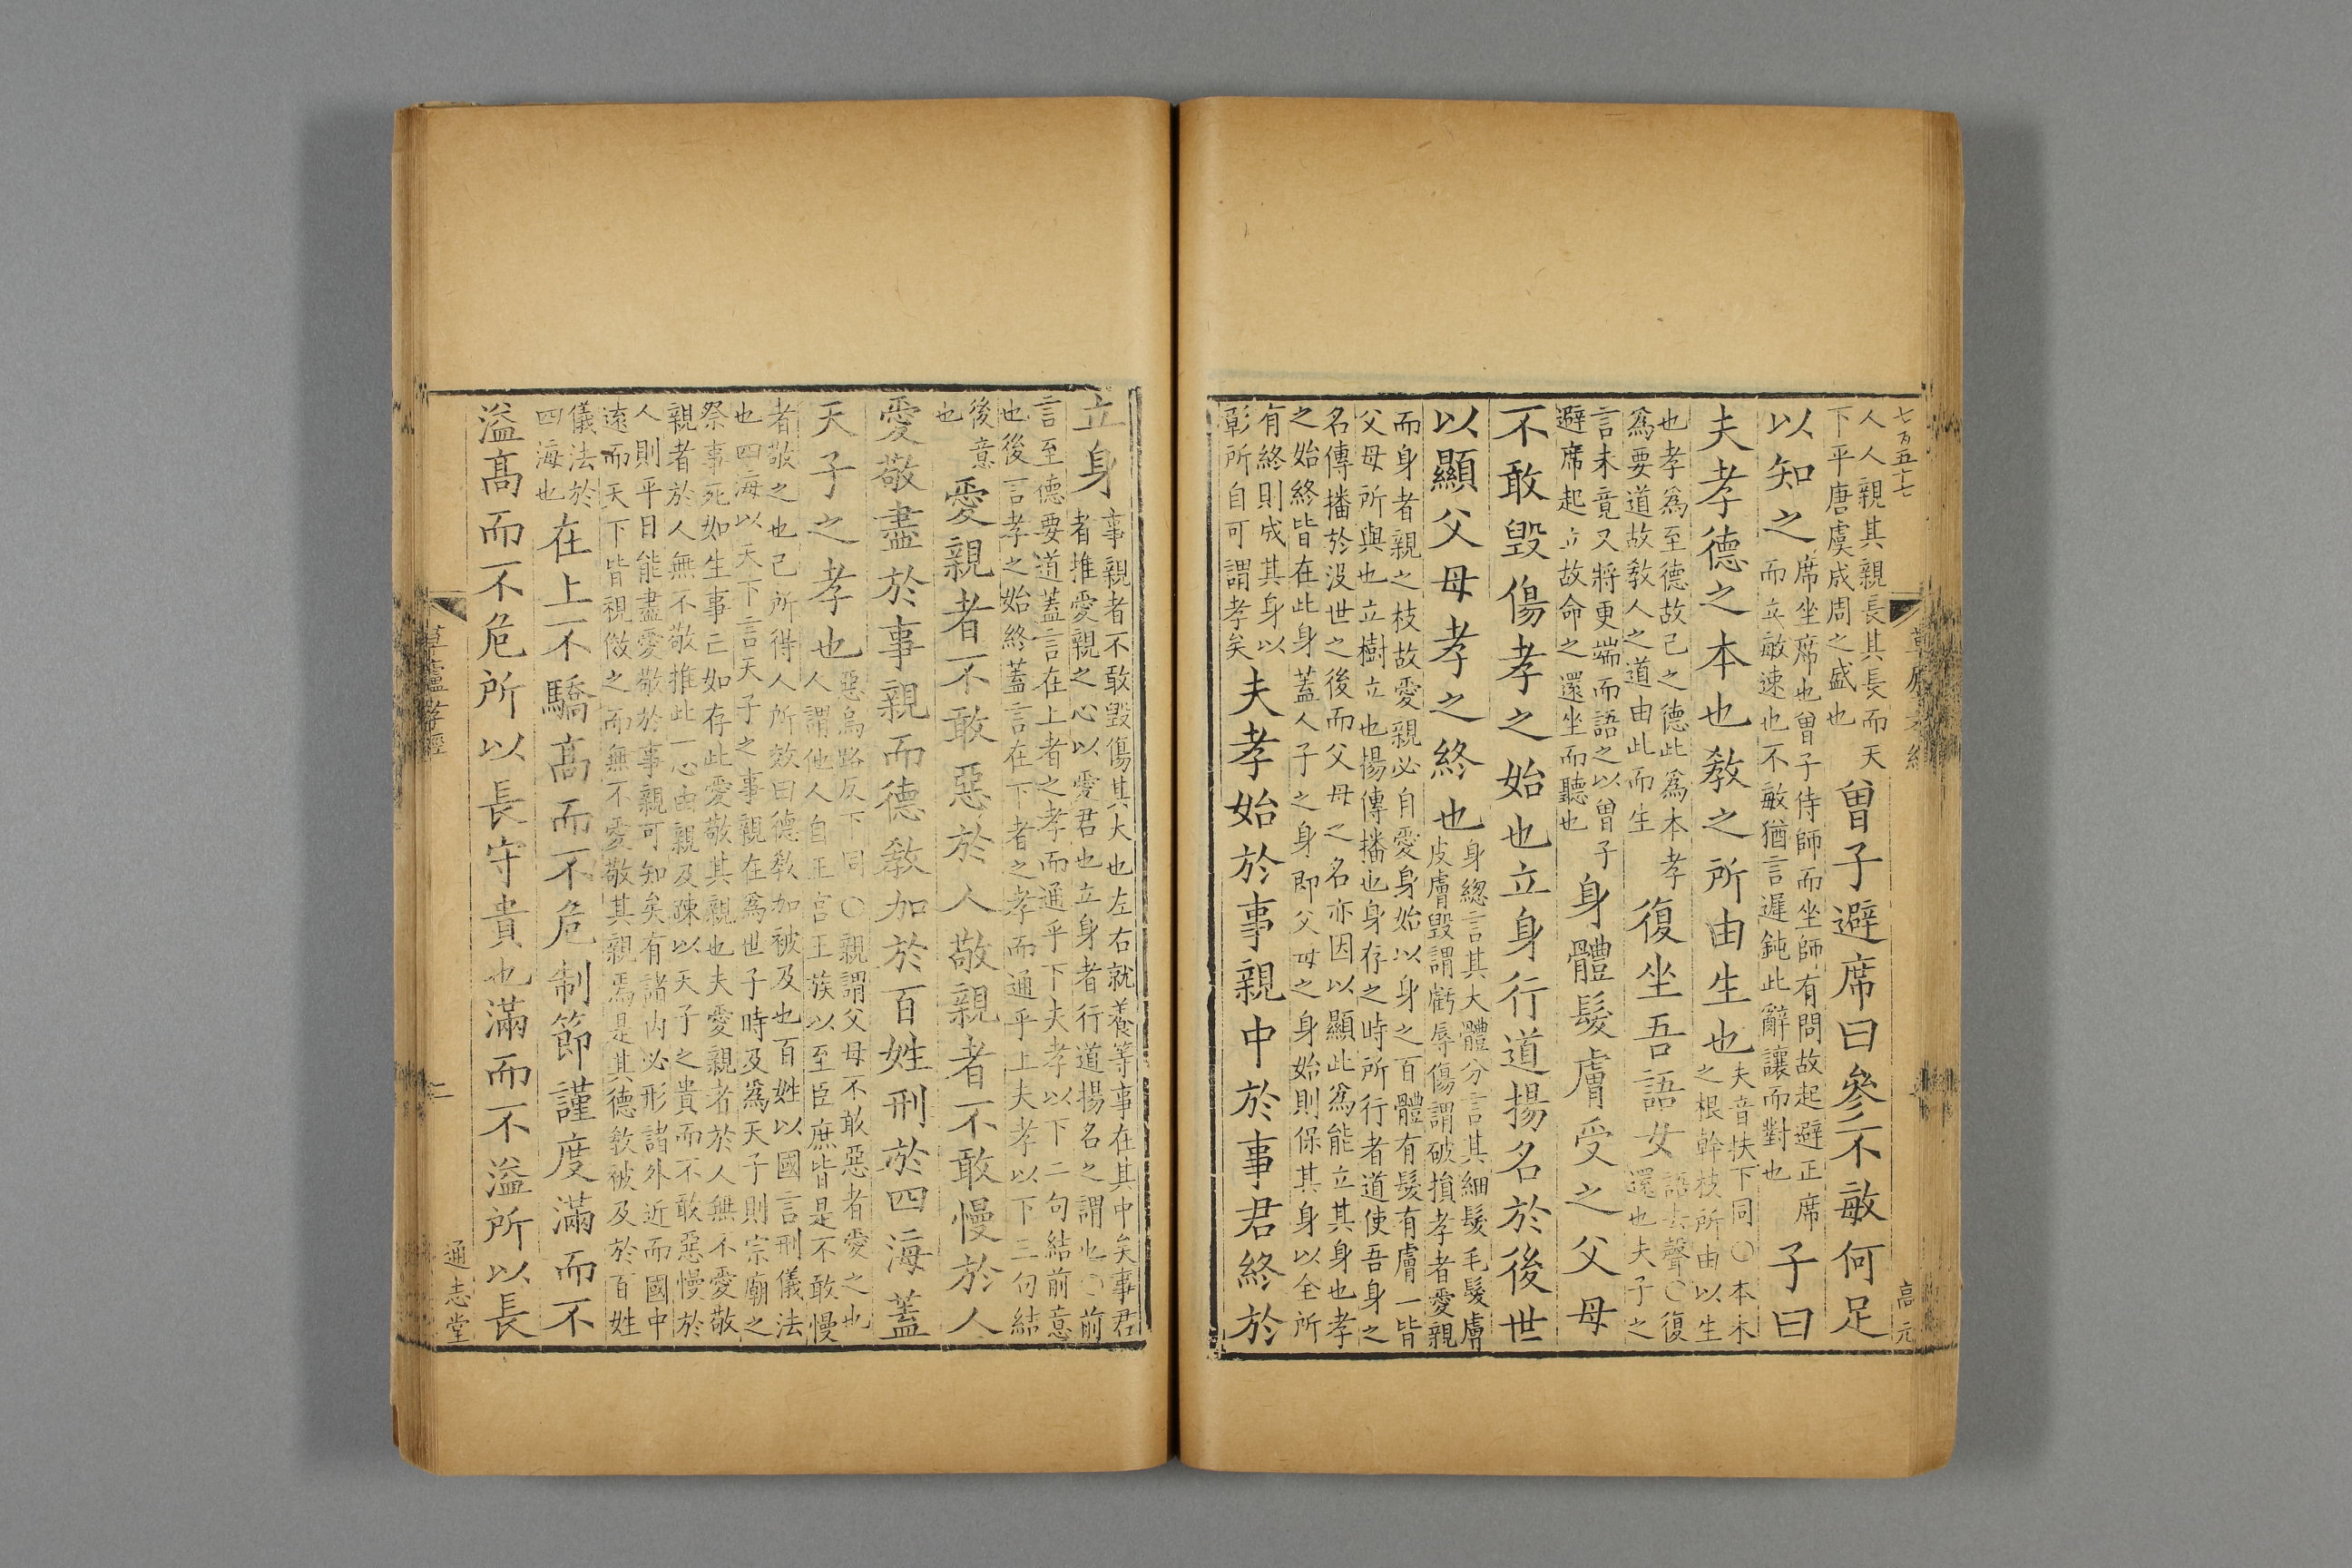 七百五十七
高元
人人親其親長其長而天
下平唐虞成周之盛也
曾子避席曰參不敏何足
以知之
席坐席也曾子侍師而坐師有問故起避正席
而立敏速也不敏猶言遲鈍此辭讓而對也
子曰
夫孝德之本也敎之所由生也
夫音扶下同○本木
之根幹枝所由以生
也孝爲至德故已之德此爲本孝
爲要道故敎人之道由此而生
復坐吾語女
語去聲○復
還也夫子之
言未竟又將更端而語之以曾子
避席起立故命之還坐而聽也
身體髮膚受之父母
不敢毀傷孝之始也立身行道揚名於後世
以顯父母孝之終也
身總言其大體分言其細髮毛髮膚
皮膚毀謂虧辱傷謂破損孝者愛親
而身者親之枝故愛親必自愛身始以身之百體有髮有膚一皆
父母所與也立樹立也揚傳播也身存之時所行者道使吾身之
名傳播於没世之後而父母之名亦因以顯此爲能立其身也孝
之始終皆在此身蓋人子之身即父母之身始則保其身以全所
有終則成其身以
彰所自可謂孝矣
夫孝始於事親中於事君終於
立身
事親者不敢毀傷其大也左右就養等事在其中矣事君
者推愛親之心以愛君也立身者行道揚名之謂也○前
言至德要道蓋言在上者之孝而通乎下夫孝以下二句結前意
也後言孝之始終蓋言在下者之孝而通乎上夫孝以下三句結
後意
也
愛親者不敢惡於人敬親者不敢慢於人
愛敬盡於事親而德敎加於百姓刑於四海蓋
天子之孝也
惡烏路反下同○親謂父母不敢惡者愛之也
人謂他人自正宫王族以至臣庶皆是不敢慢
者敬之也已所得人所效曰德敎加被及也百姓以國言刑儀法
也四海以天下言天子之事親在爲世子時及爲天子則宗廟之
祭事死如生事亡如存此愛敬其親也夫愛親者於人無不愛敬
親者於人無不敬推此一心由親及疎以天子之貴而不敢惡慢於
人則平日能盡愛敬於事親可知矣有諸内必形諸外近而國中
遠而天下皆視傚之而無不愛敬其親焉是其德敎被及於百姓
儀法於
四海也
在上不驕高而不危制節謹度滿而不
溢高而不危所以長守貴也滿而不溢所以長
草廬孝經
二
通志堂